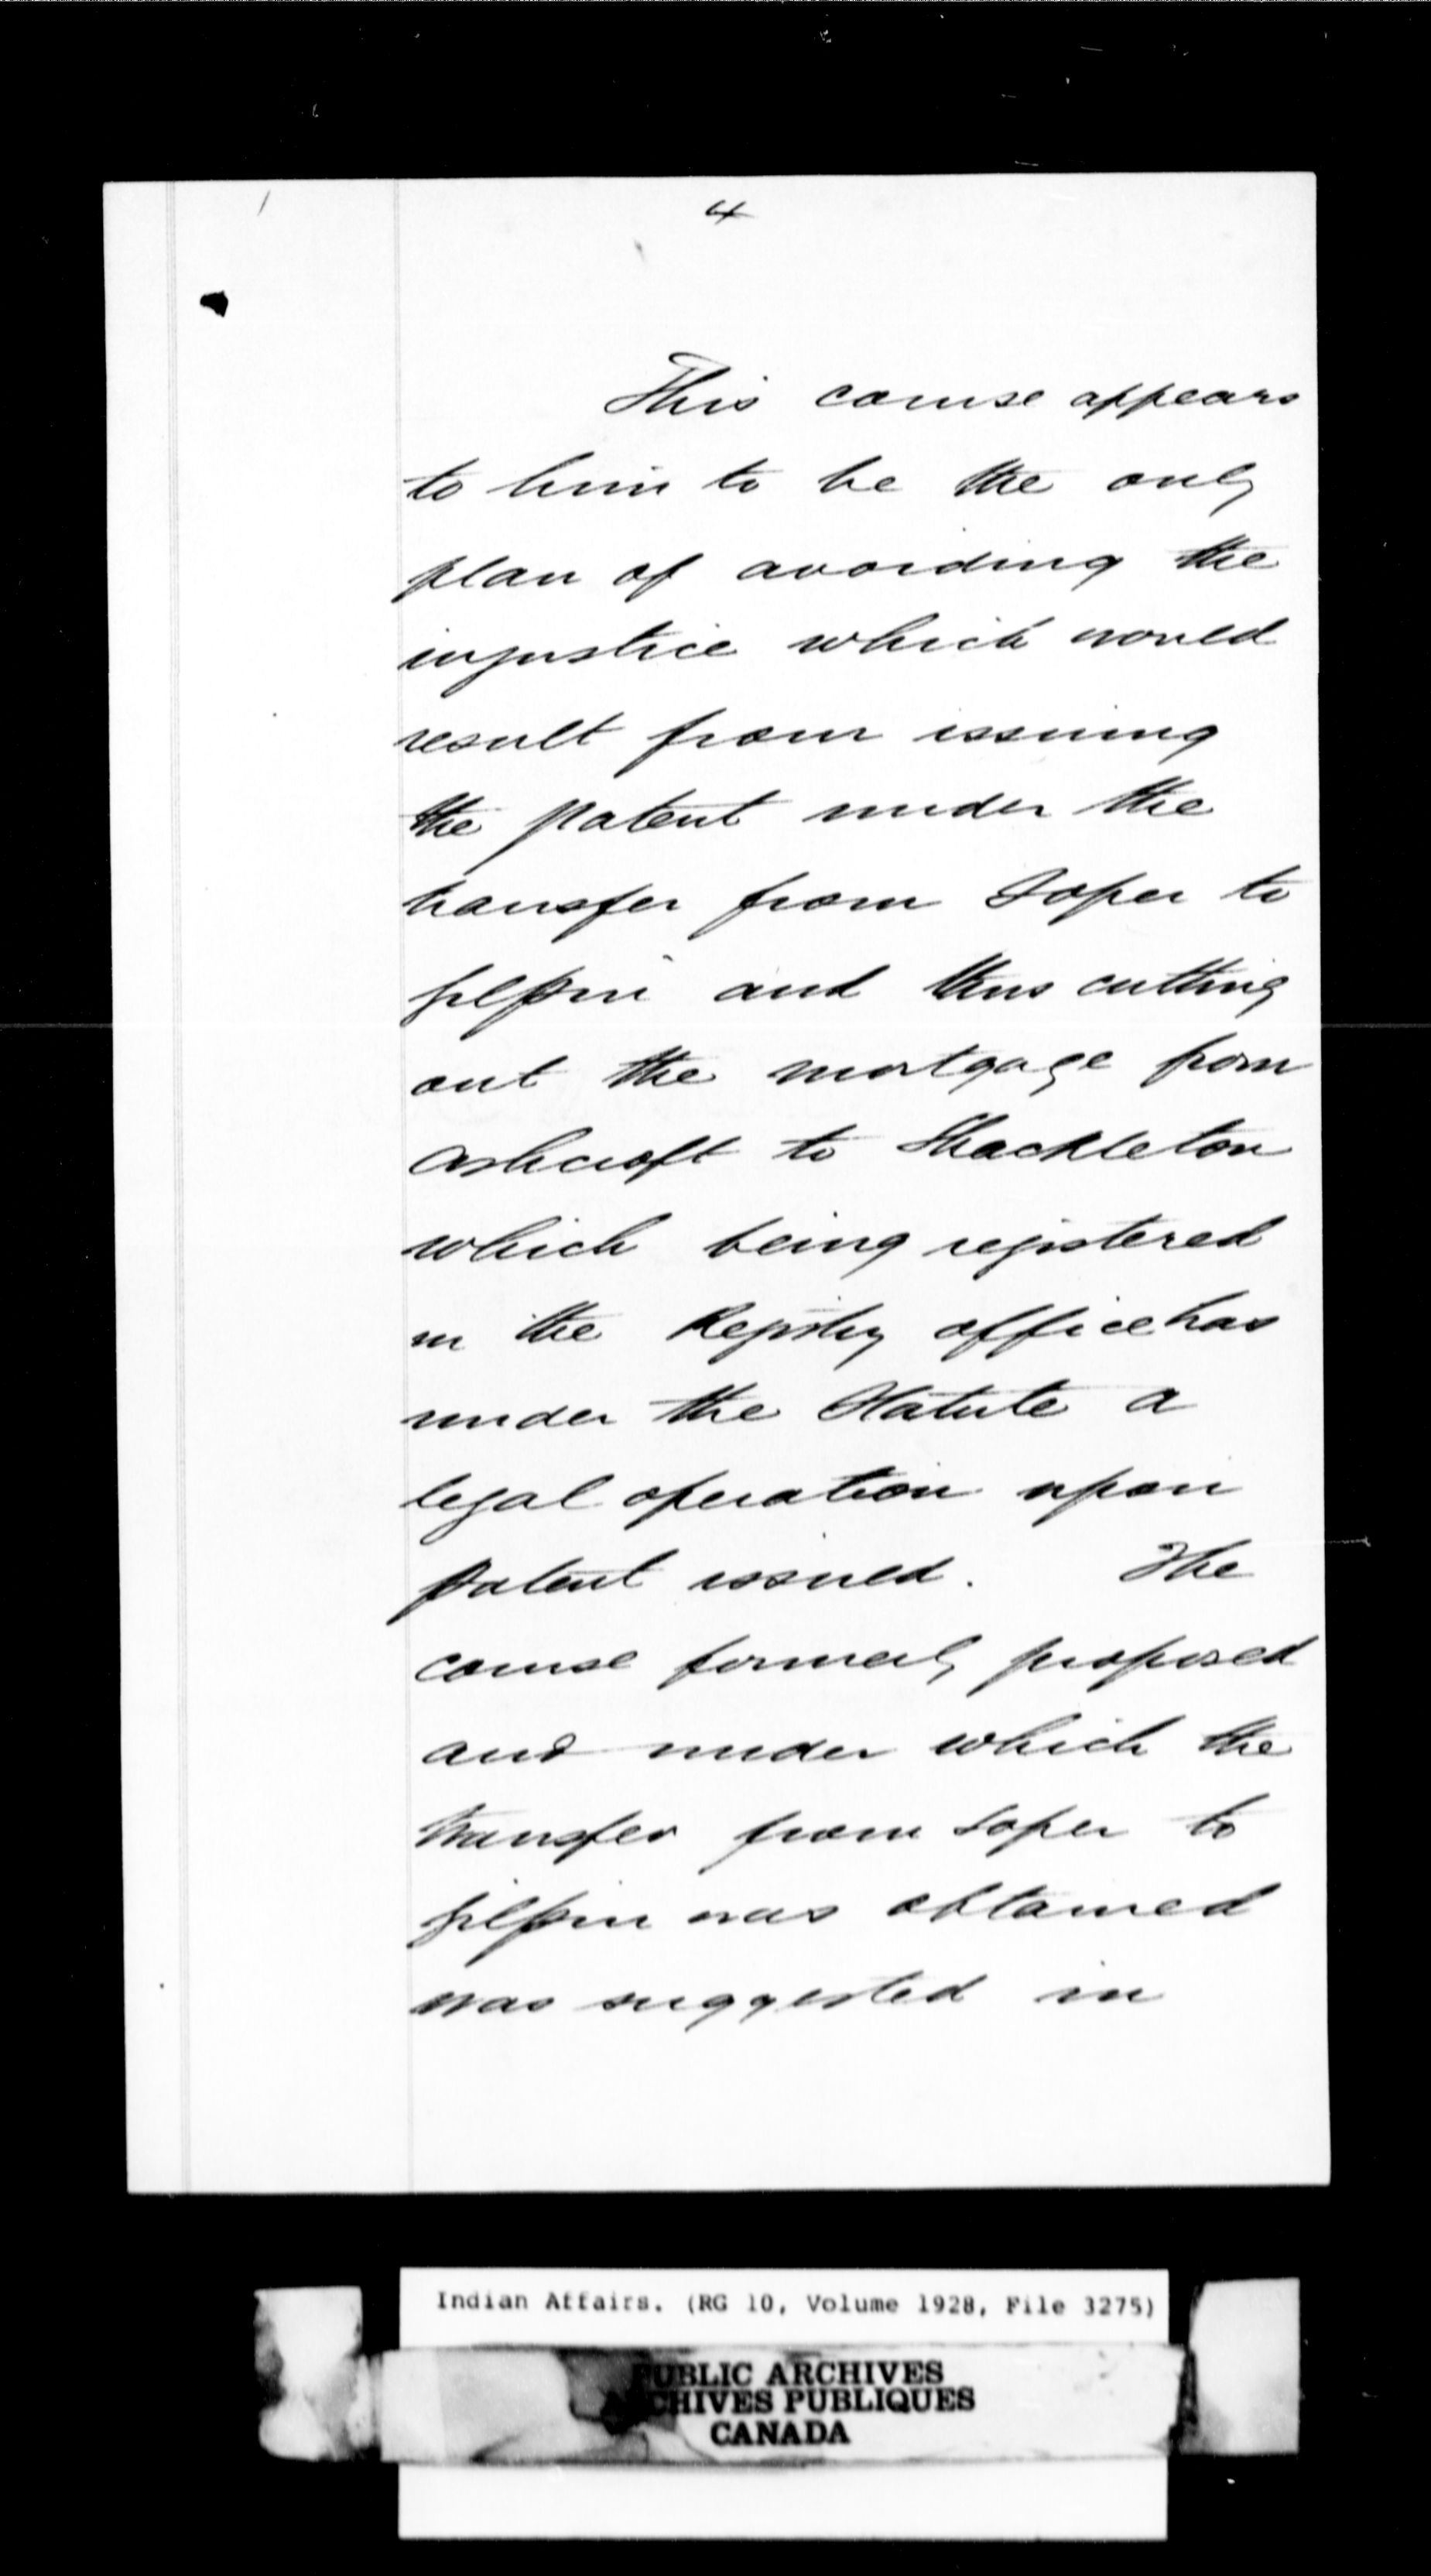 4
This course appears
to him to be the only
plan of avoiding the
injustice which would
result from issuing
the patent under the
transfer from Soper to
Gilpin and thus cutting
out the mortgage from
Ashcroft to Shackleton
which being registered
in the Registry office has
under the Statute a
legal operation upon
patent issued. The
course formerly proposed
and under which the
transfer from Soper to
Gilpin was obtained
was suggested in
Indian Affairs. (RG 10, Volume 1928, File 3275)
PUBLIC ARCHIVES
ARCHIVES PUBLIQUES
CANADA